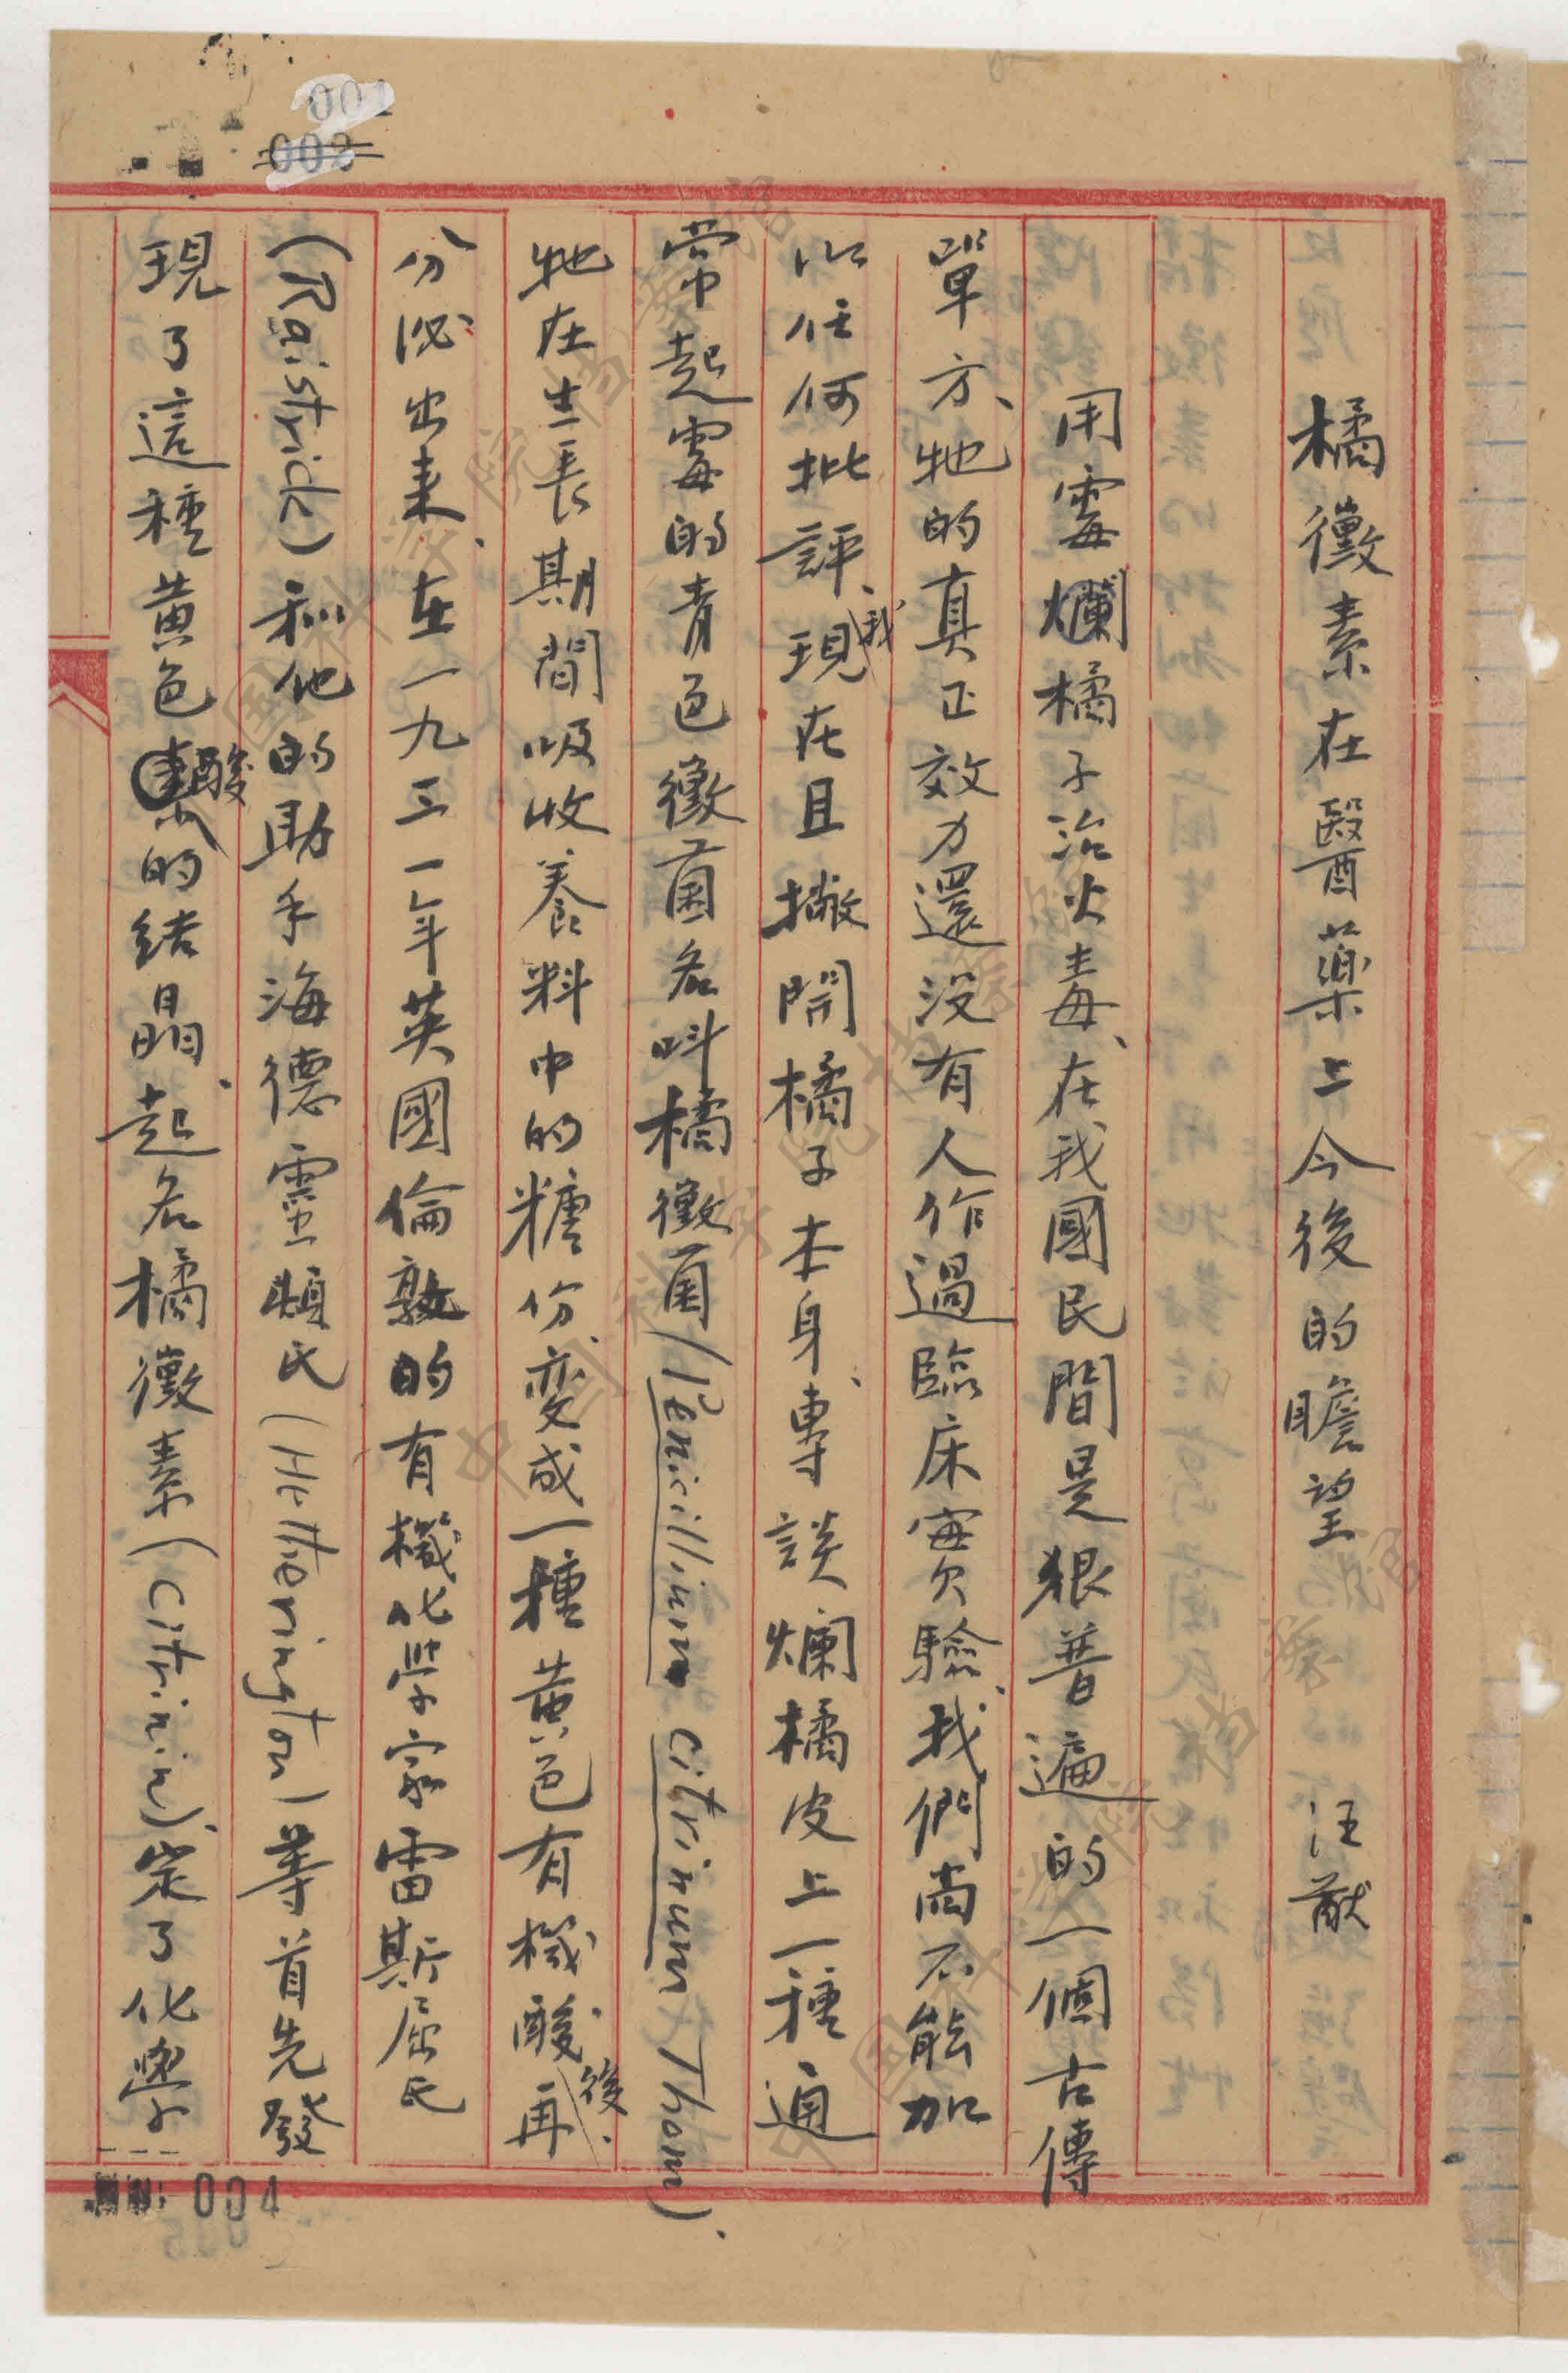 橘黴素在醫藥上今後的瞻望 汪猷
用霉爛橘子治火毒、在我國民間是狠普遍的一個古傳
單方、牠的真正效力還没有人作過臨床實驗、我們尚不能加
以任何批評、我現在且撇開橘子本身、專談爛橘皮上一種通
常起霉的青色黴菌名呌橘黴菌(Penicillium citrinum Thom)、
牠在生長期間吸收養料中的糖份、变成一種黄色有機酸、後再
分泌出来、在一九三一年英國倫敦的有機化学家雷斯屈氏
(Raistrick)和他的助手海德靈頓氏(Hetherington)等首先發
現了這種黄色酸的結晶、起名橘黴素(Citrinin)、定了化學
001
002
004
中国科学院档案馆
中国科学院档案馆
中国科学院档案馆